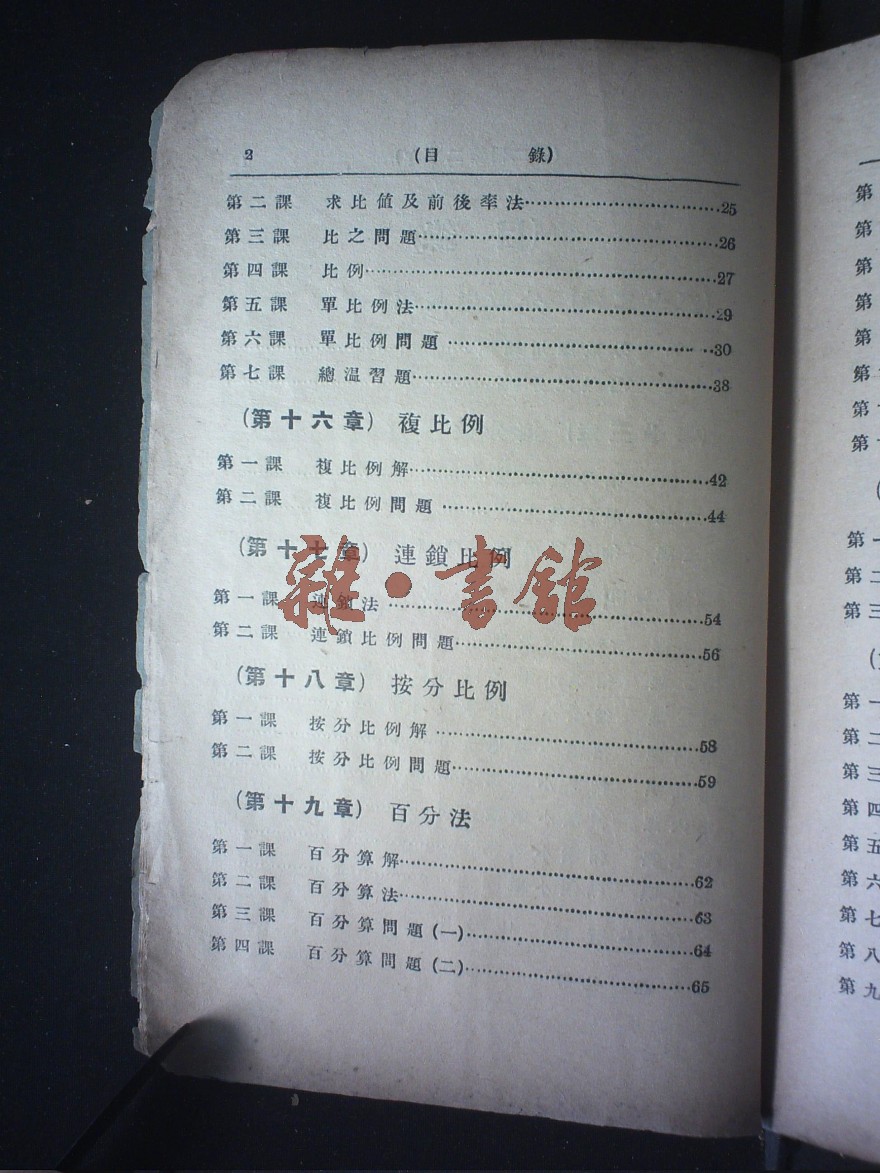 2 (目 錄)
第二課 求比値及前後率法……25
第三課 比之問題……26
第四課 比例……27
第五課 單比例法……29
第六課 單比例問題……30
第七課 總温習題……38
(第十六章) 複比例
第一課 複比例解……42
第二課 複比例問題……44
(第十七章) 連鎖比例
第一課 連鎖法……54
第二課 連鎖比例問題……56
(第十八章) 按分比例
第一課 按分比例解……58
第二課 按分比例問題……59
(第十九章) 百分法
第一課 百分算解……62
第二課 百分算法……63
第三課 百分算問題(一)……64
第四課 百分算問題(二)……65
雜·書館
第
第
第
第
第
第
第
第
第一
第二
第三
第一
第二
第三
第四
第五
第六
第七
第八
第九